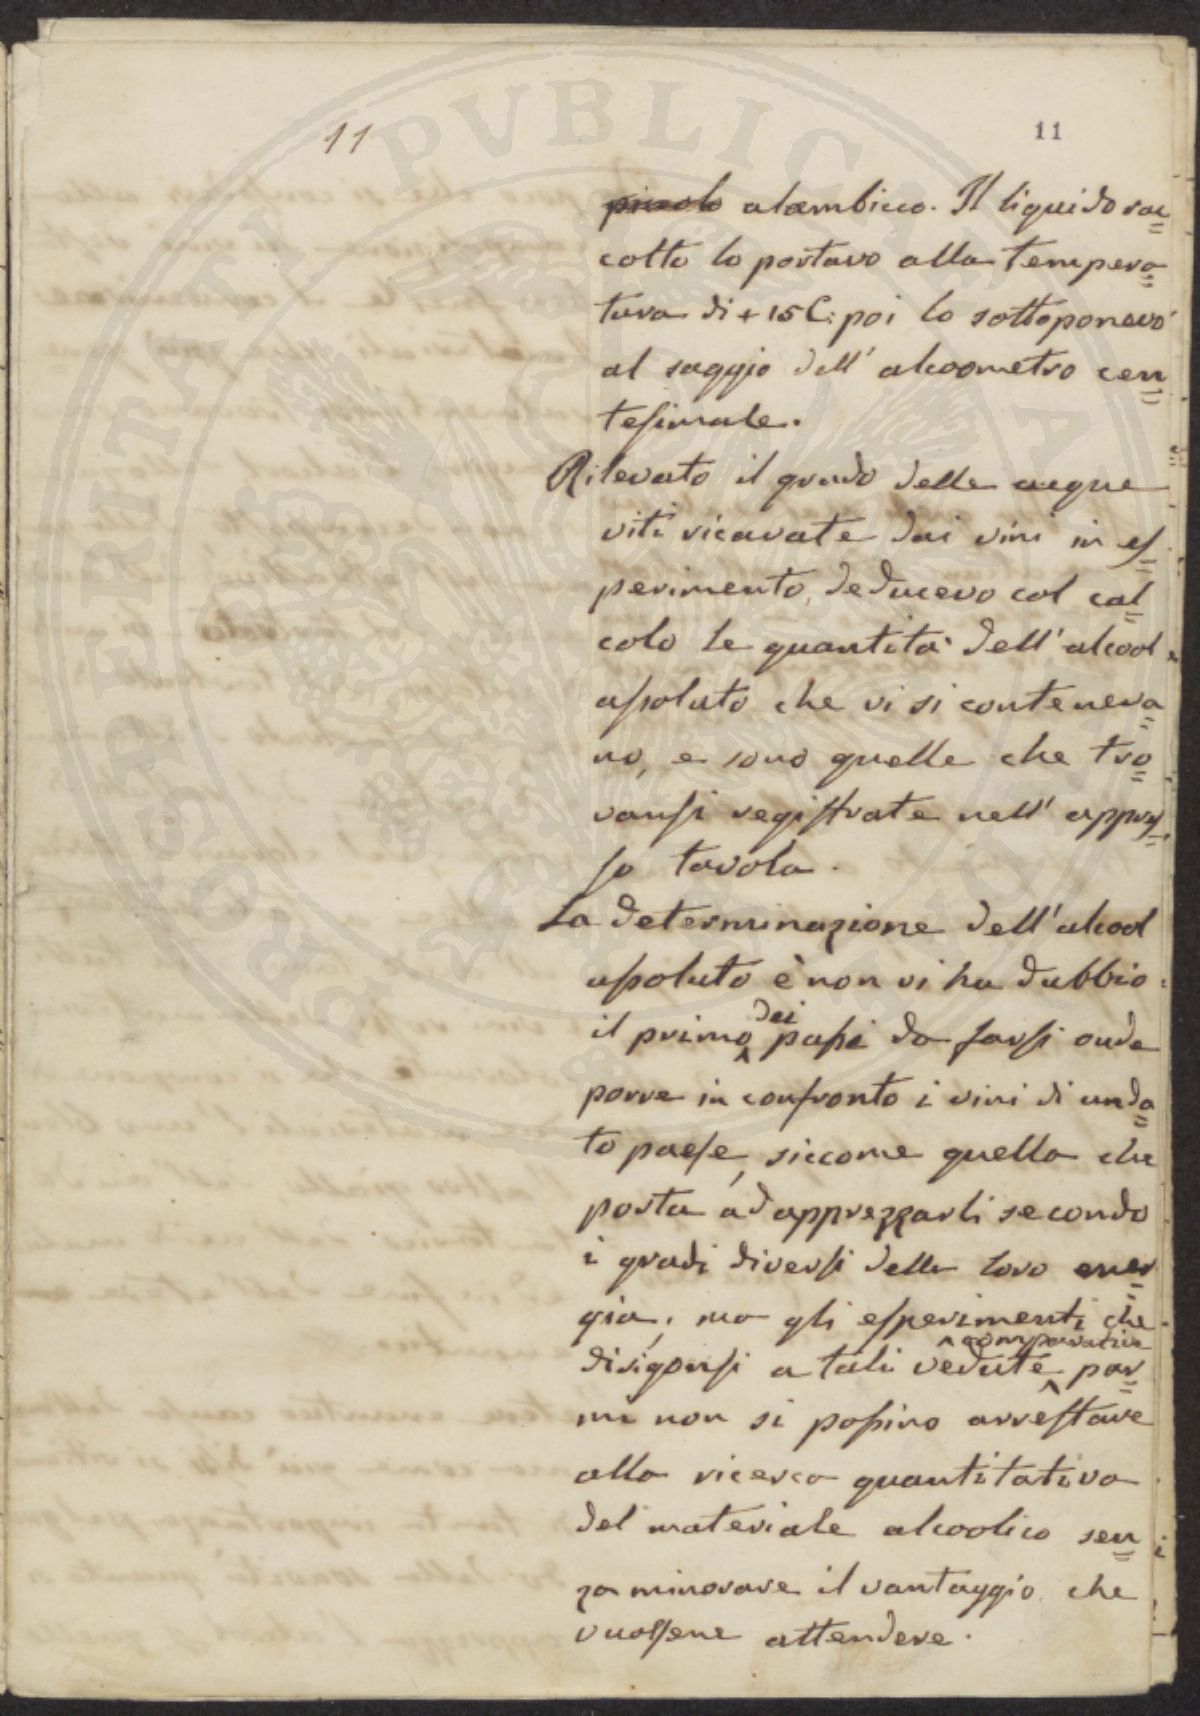 11
11
piccolo alambicco. Il liquido rac=
colto lo portavo alla tempera=
tura di + 15 C: poi lo sottoponevo
al saggio dell' alcoometro cen=
tesimale.
Rilevato il grado delle acque
viti ricavate dai vini in es=
perimento, deducevo col cal=
colo le quantità dell' alcool
assoluto che vi si conteneva=
no, e sono quelle che tro=
vansi registrate nell' appres=
so tavola.
La determinazione dell' alcool
assoluto è non vi ha dubbio
il primo dei passi da farsi onde
porre in confronto i vini di un da=
to paese, siccome quella che
porta ad apprezzarli secondo
i gradi diversi della loro ener=
gia; ma gli esperimenti che
dirigonsi a tali vedute comparative par=
mi non si possino arrestare
alla ricerca quantitativa
del materiale alcoolico sen=
za minorare il vantaggio che
vuolsene attendere.
PROSPERITATI PVBLICAE AVGENDAE